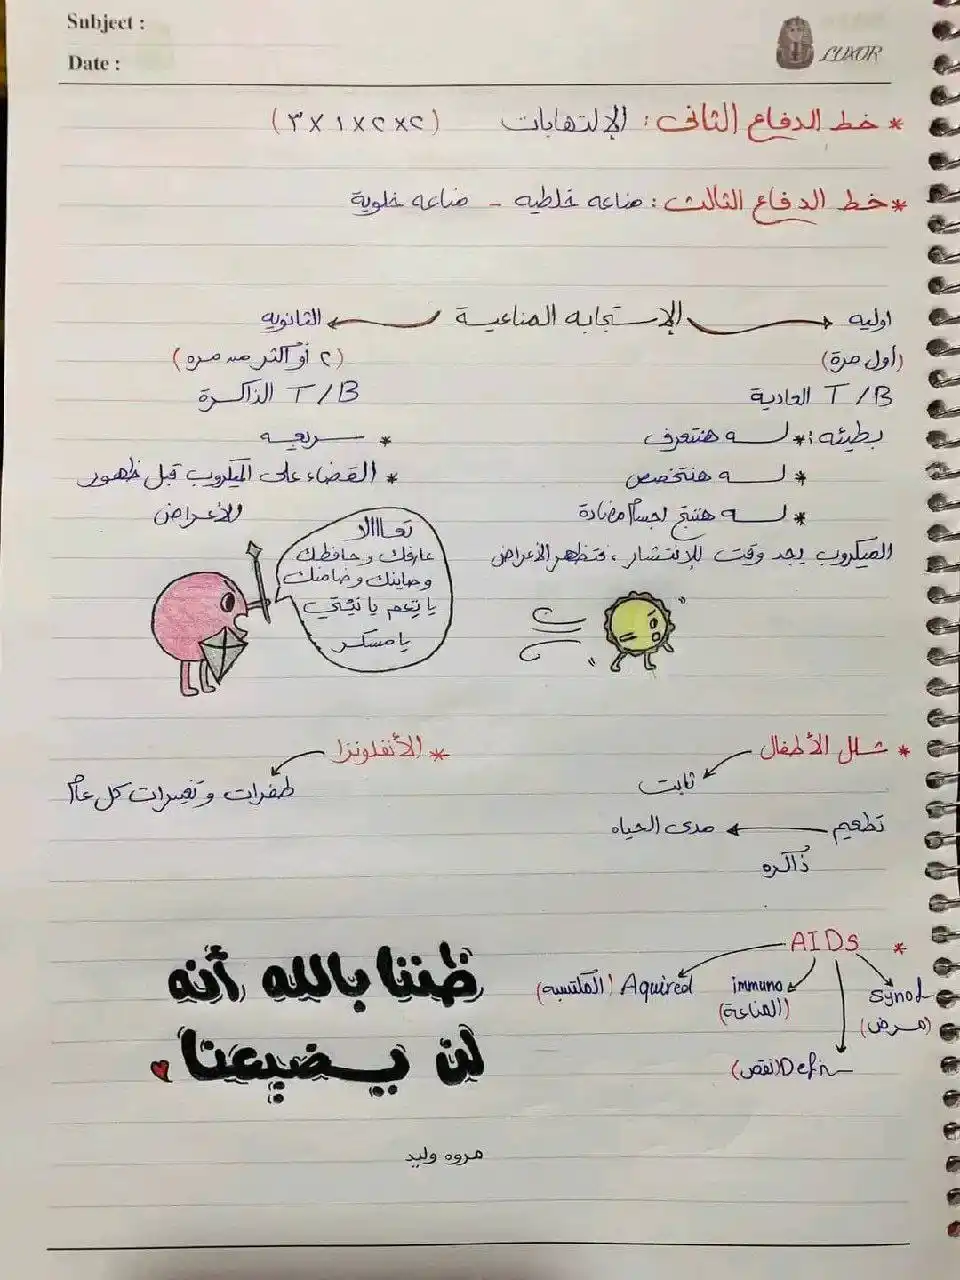 Subject :
LUXOR
Date :
* خط الدفاع الثانى : الإلتهابات (٢×٢×١×٣)
* خط الدفاع الثالث : مناعه خلطيه - مناعه خلوية
اوليه الإستجابه المناعية الثانويه
(أول مرة) (٢ أو أكثر من مره)
T/B العادية T/B الذاكرة
بطيئه : * لسه هنتعرف * سريعه
* لسه هنتخصص * القضاء على الميكروب قبل ظهور
* لسه هننتج اجسام مضادة الأعراض
الميكروب يجد وقت للإنتشار ، فتظهر الأعراض
تعاااالا
عارفك وحافظك
وصاينك وضامنك
يامسكر
* شلل الأطفال * الأنفلونزا
ثابت طفرات وتغيرات كل عام
تطعيم مدى الحياه
ذاكره
* AIDs
Synd (مرض) immuno (المناعة) Aquired (المكتسبه)
Defi (نقص)
ظننا بالله أنه
لن يضيعنا
مروه وليد